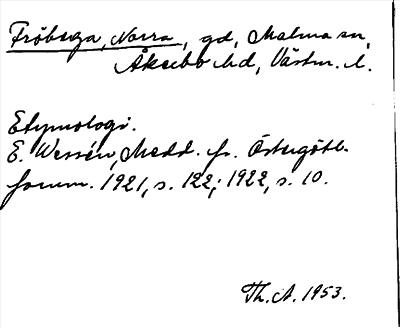 Fröbega, Norra, gd, Malma sn,
Åkerbo hd, Västm. l.
Etymologi.
E. Wessén, Medd. fr. Östergötl.
fornm. 1921, s. 122; 1922, s. 10.
Th. A. 1953.